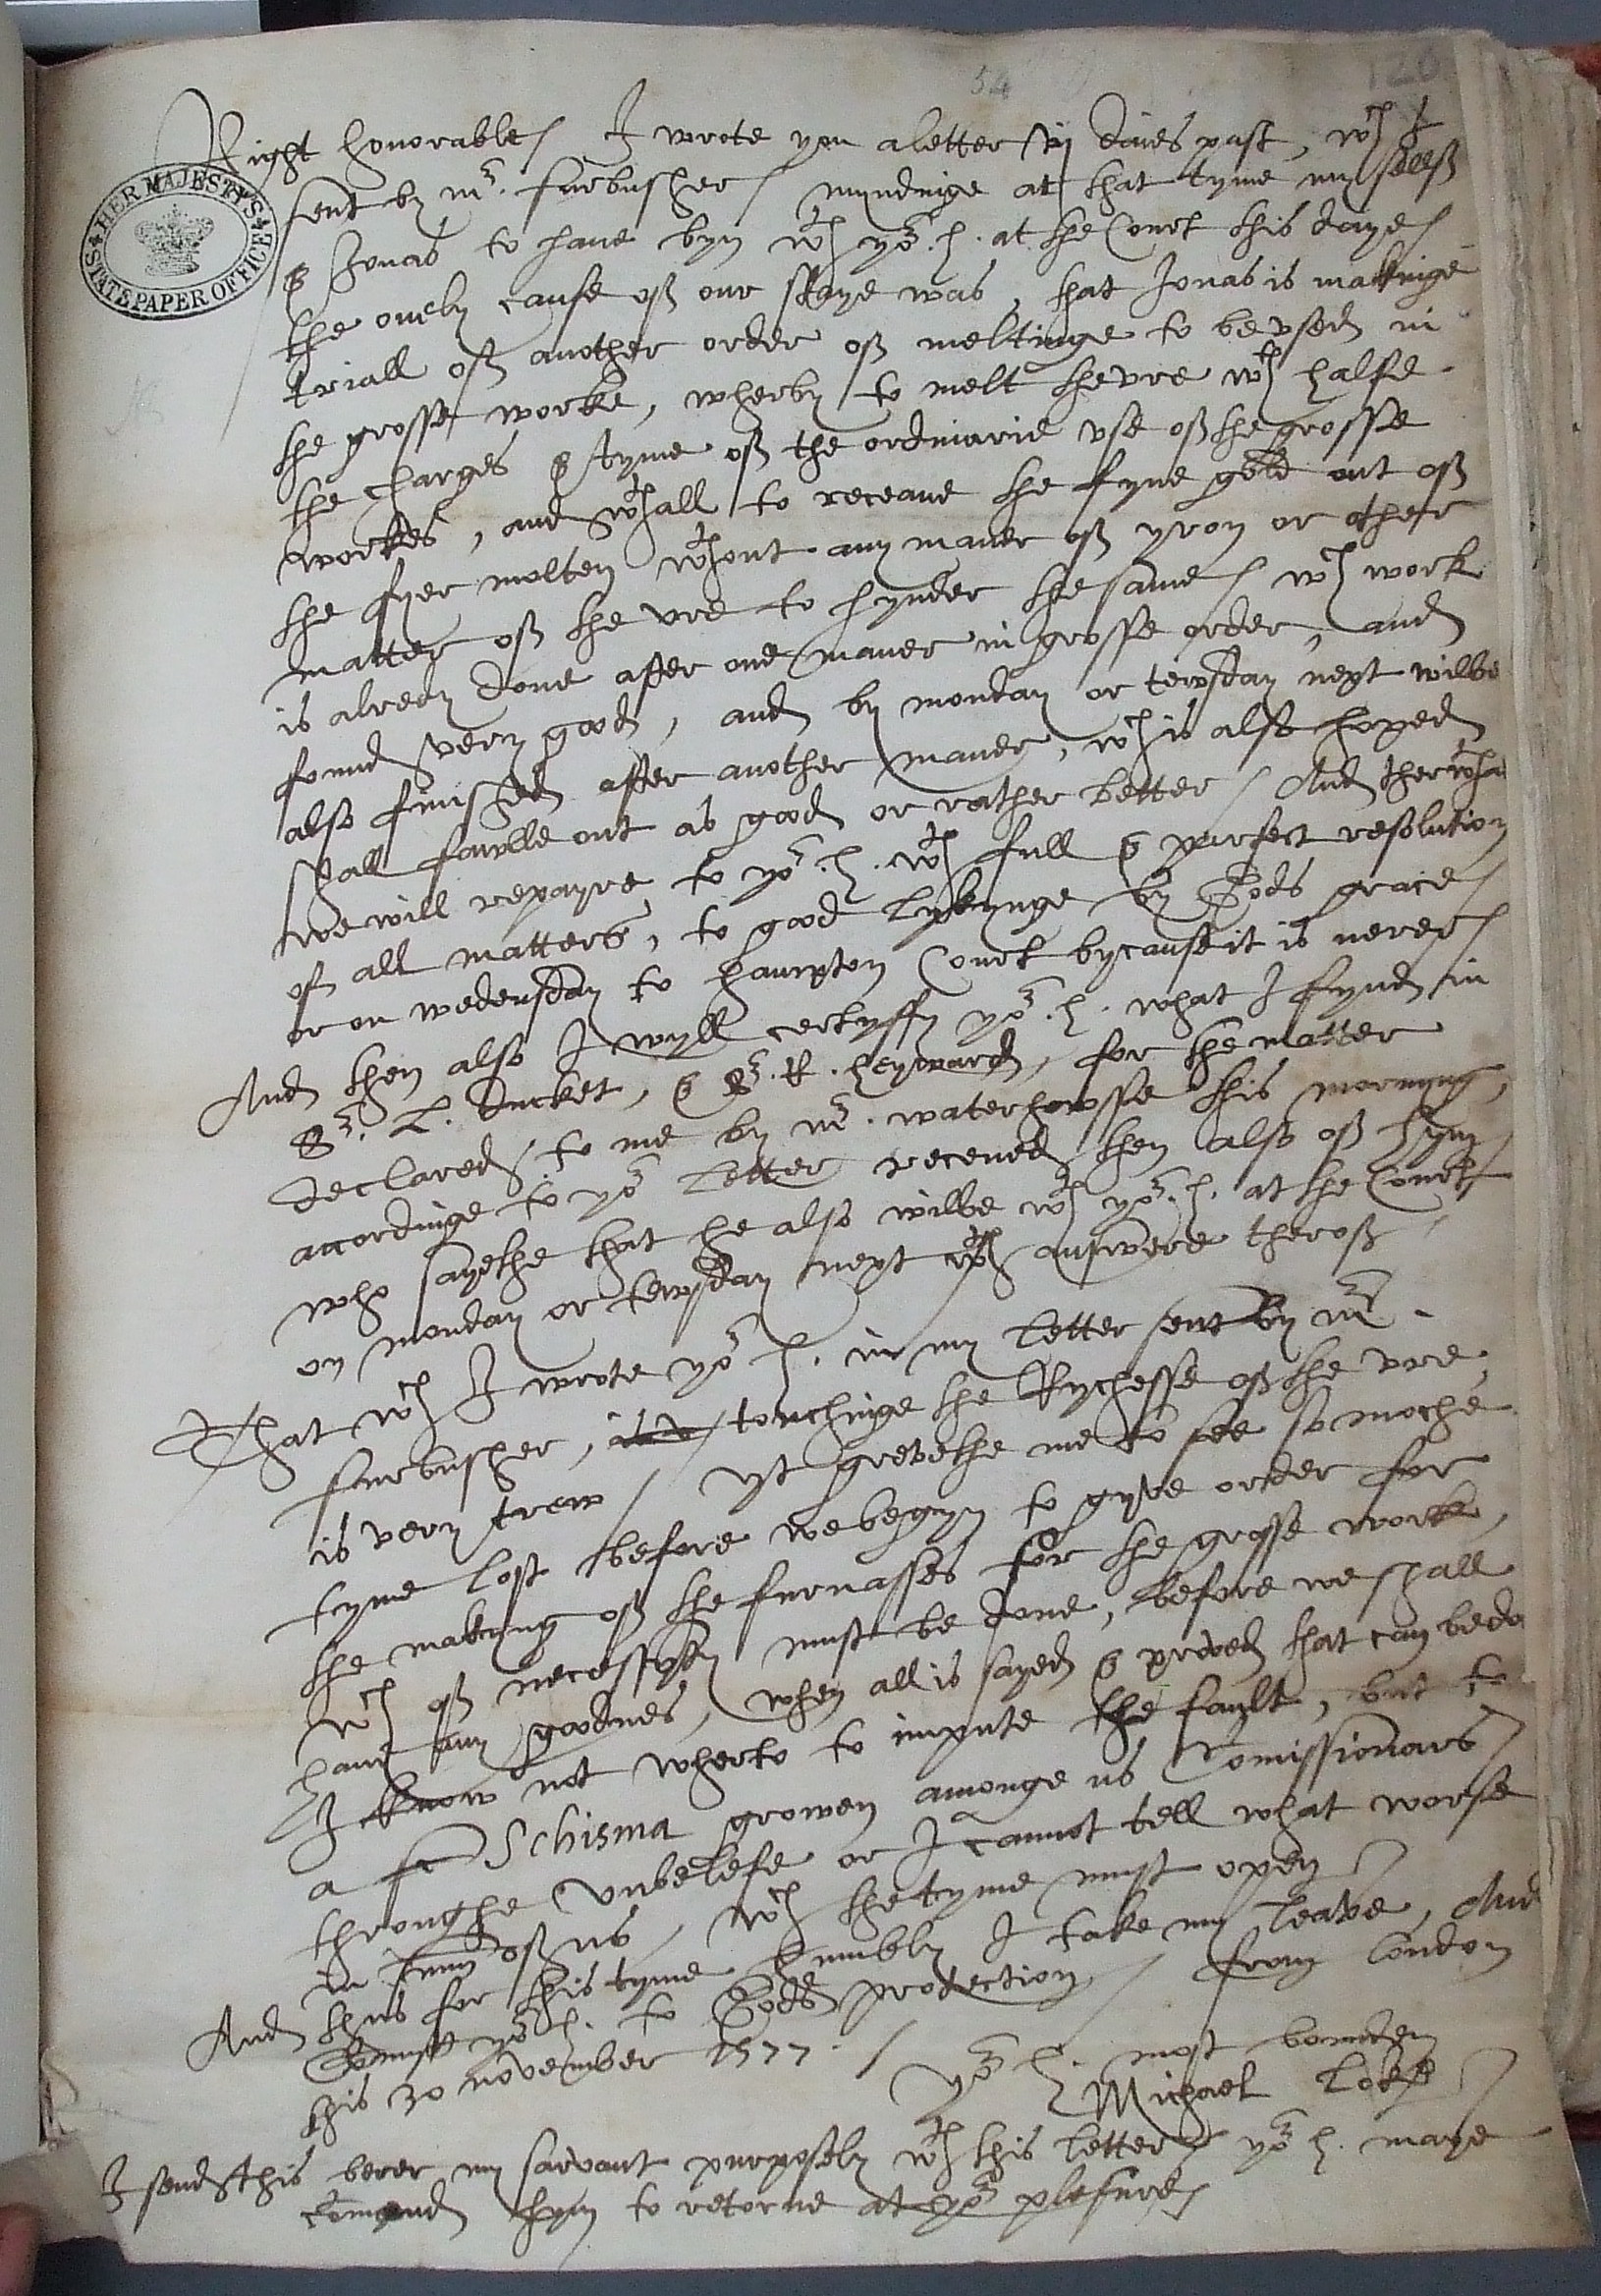 54
120
Right honorable / I wrote you a letter iij daies past, wch I
sent by mr. furbusher / myndinge at that tyme my selff
& Jonas to have byn wth yor. h. at the Court this daye /
the onely cause off our staye was, that Jonas is makinge
triall off another order off meltinge to be vsed in
the grosse worke, wherby to melt the vre wth halfe
the charges & tyme off the ordinarie vse off the grosse
workes, and wthall to receave the fyne gold out off
the fyer molten wthout any maner off yron or other
matter off the vre to hynder the same / wch work
is alredy done after one maner in grosse order, and
found very good, and by monday or tewsday next wilbe
also finished after another maner, wch is also hoped
shall fawlle out as good or rather better / And therwthall
we will repayre to yor. h. wth full & perfect resolution
off all matters, to good lykynge by Gods grace /
or on wedensday to hampton Court bycause it is nerer /
And then also I wyll certyffy yor. h. what I fynd in
Sr. L. Ducket, & Sr. R. heyward, for the matter
declared to me by mr. waterhowsse this mornyng,
accordinge to yor letter receved then also off hym /
who sayethe that he also wilbe wth yor. h. at the Court
on monday or tewsday next wth answere theroff /
That wch I wrote yor h. in my letter sent by mr.
furbusher, touchinge the Rychesse off the vre,
is very trew / yt grevethe me to see so moche
tyme lost before we begyn to gyve order for
the making off the furnasses for the grosse worke,
wch off necessyty must be done, before we shall
have any goodnes, when all is sayed & proved that can be do
I know not wherto to impute the fault, but to
a Schisma growen amonge us Comissionars /
throughe vnbelefe or I cannot tell what worse
in off us, wch the tyme must open /
And thus for this tyme humbly I take my leave, And
Comytt yor h. to Gods protection / from london
this 30 november 1577. /
yor h. most bounden
Michael Lok
I send this berer my sarvant purposely wth this letter / yor h. maye
comand hym to retorne at yor plesure /
HER MAJESTY'S STATE PAPER OFFICE